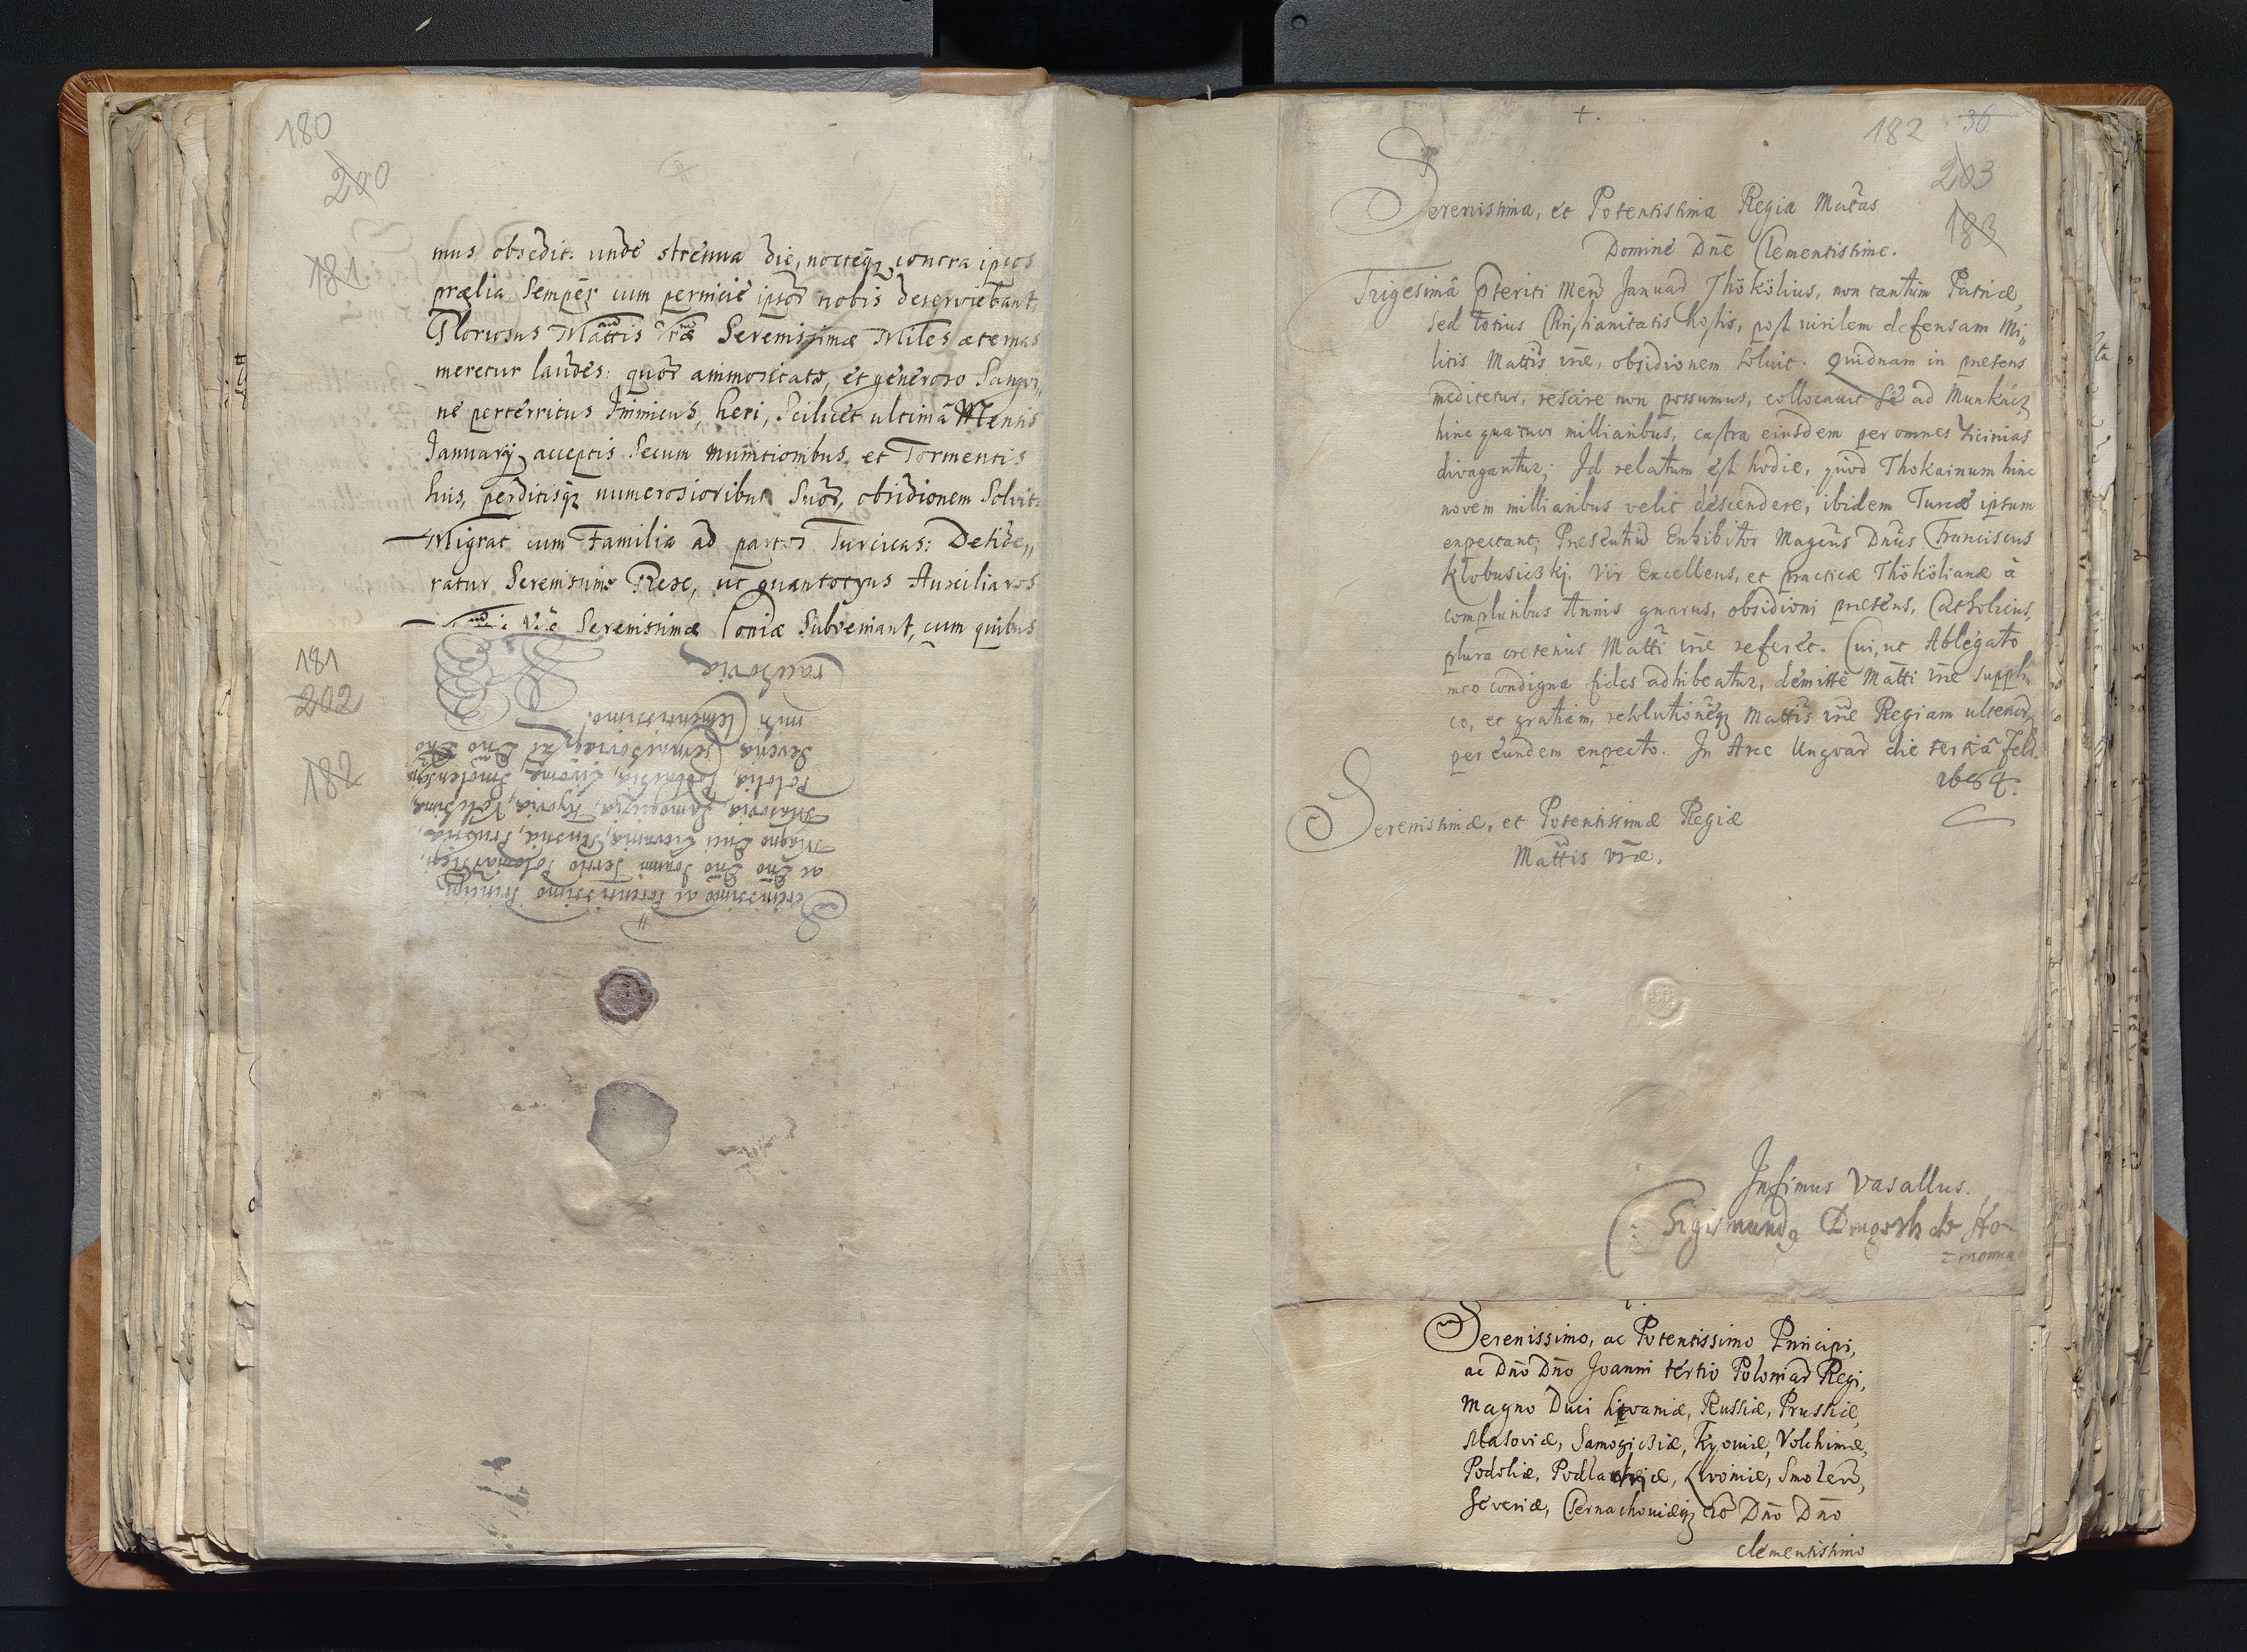 180
200
181
mus, obsedit: unde strenua die, nocteq3 contra ipsos
prælia Semper cum pernicie ipsor nobis deserviebant,
Gloriosus Mattis Vræ Serenissimæ Miles æternas
meretur laudes: quor animositate, et generoso Sangvi„
ne perterritus Inimicus, heri, Scilicet ultimâ Mensis
January, acceptis Secum munitionibus, et Tormentis
suis, perditisq3 numerosioribus Suor, obsidionem Solvit.
Migrat cum Familia ad partes Turcicas: Deside„
ratur Serenissime Rex, ut quantocyus Auxiliares
Vræ Serenissimæ Copiæ Subveniant, cum quibus
181
202
182
Cracovia
mihi Clementissimo.
Severiæ Czerniechoviæq3 Dno Dno
Podoliæ, Podlachiæ, Livoniæ, Smolensciæ
Masoviæ, Samogitiæ, Kyoviæ, Volhiniæ,
Magno Duci Litvaniæ, Russiæ, Prussiæ,
ac Dno Dno Joanni Tertio Poloniar Regi,
Serenissimo ac Potentissimo Principi
182 36
203
183
Serenissima, et Potentissima Regia Mattas
Domine Dne Clementissime.
Trigesimâ Pteriti Mens Januar Thököлius, non tantum Patriæ,
sed totius Christianitatis hostis, post virilem defensam Mi„
litis Mattis vræ, obsidionem solvit. Quidnam in præsens
meditetur, rescire non possumus, collocavit se ad Munkácz
hinc quatuor milliaribus, castra eiusdem per omnes Vicinias
divagantur; Id relatum est hodie, quod Thokainum hinc
novem milliaribus velit descendere, ibidem Turcæ ipsum
expectant; Præsentiu Exhibitor Magcus Dnus Franciscus
Klobusiczkj. Vir Excellens, et practicæ Thökölianæ à
compluribus Annis gnarus, obsidioni præsens, Catholicus,
plura oretenus Matti vræ referet. Cui, ut Ablegato
meo condigna fides adhibeatur, demisse Matti vræ suppli„
co, et gratiam, resolutionéq3 Mattis vræ Regiam ulterior
per eundem expecto. In Arce Ungvár die tertiâ Febr.
1684.
Serenissimæ, et Potentissimæ Regiæ
Mattis vræ.
Infimus Vasallus.
Sigismundg Drugeth de Ho-
=monna
Serenissimo, ac Potentissimo Principi,
ac Dno Dno Joanni tertio Poloniar Regi,
Magno Duci Litvaniæ, Russiæ, Prussiæ,
Masoviæ, Samogitiæ, Kyoviæ, Volhiniæ,
Podoliæ, Podlachiæ, Livoniæ, Smolen,
Severiæ, Csernachoviæq3 Dno Dno
clementissimo